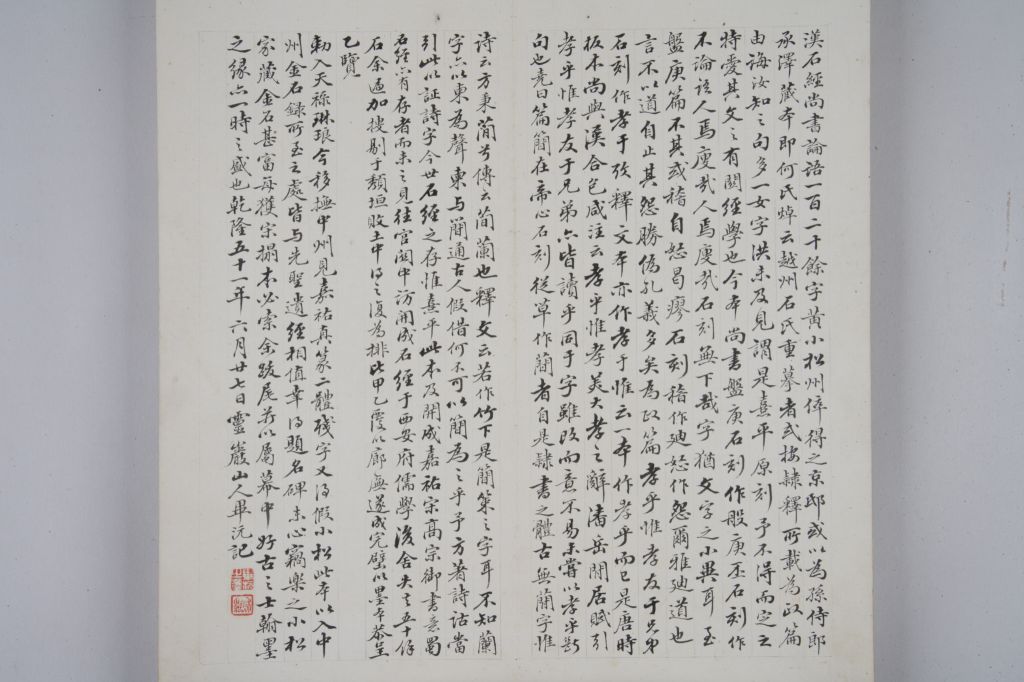 漢石經尚書論語一百二十餘字黃小松州倅得之京邸或以為孫侍郎
承澤藏本即何氏焯云越州石氏重摹者或按隸釋所載為政篇
由誨汝知之句多一女字洪未及見謂是熹平原刻予不得而定之
特愛其文之有關經學也今本尚書盤庚石刻作般庚丕石刻作
不論語人焉廋哉人焉廋哉石刻無下哉字猶文字之小異耳至
盤庚篇不其或稽自怒曷瘳石刻稽作迪怒作怨爾雅迪道也
言不以道自止其怨勝偽孔義多矣為政篇孝乎惟孝友于兄弟
石刻作孝于攷釋文本亦作孝于惟云一本作孝乎而已是唐時
板本尚與漢合包咸注云孝乎惟孝美大孝之辭潘岳閒居賦引
孝乎惟孝友于兄弟亦皆讀乎同于字雖改而意不易未嘗以孝乎斷
句也堯曰篇簡在帝心石刻從草作蕑者自是隸書之體古無蕑字惟
詩云方秉蕑兮傳云蕑蘭也釋文云若作竹下是簡策之字耳不知蘭
字亦以柬為聲柬与簡通古人假借何不可以簡為之乎予方著詩詁當
引此以証詩字今世石經之存惟熹平此本及開成嘉祐宋高宗御書孟蜀
石經宵存者而未之見往官關中訪開成石經于西安府儒學後舍失之五十餘
石余亟加搜剔于頹垣敗土中得之復為排比甲乙覆以廊廡遂成完璧以墨本恭呈
乙覽
勅入天祿琳琅今移撫中州見嘉祐真篆二體殘字又得假小松此本以入中
州金石錄所至之處皆与先聖遺經相值幸得題名碑末心竊樂之小松
家藏金石甚富每獲宋搨本必索余跋尾茲以屬幕中好古之士翰墨
之緣亦一時之盛也乾隆五十一年六月廿七日靈巖山人畢沅記